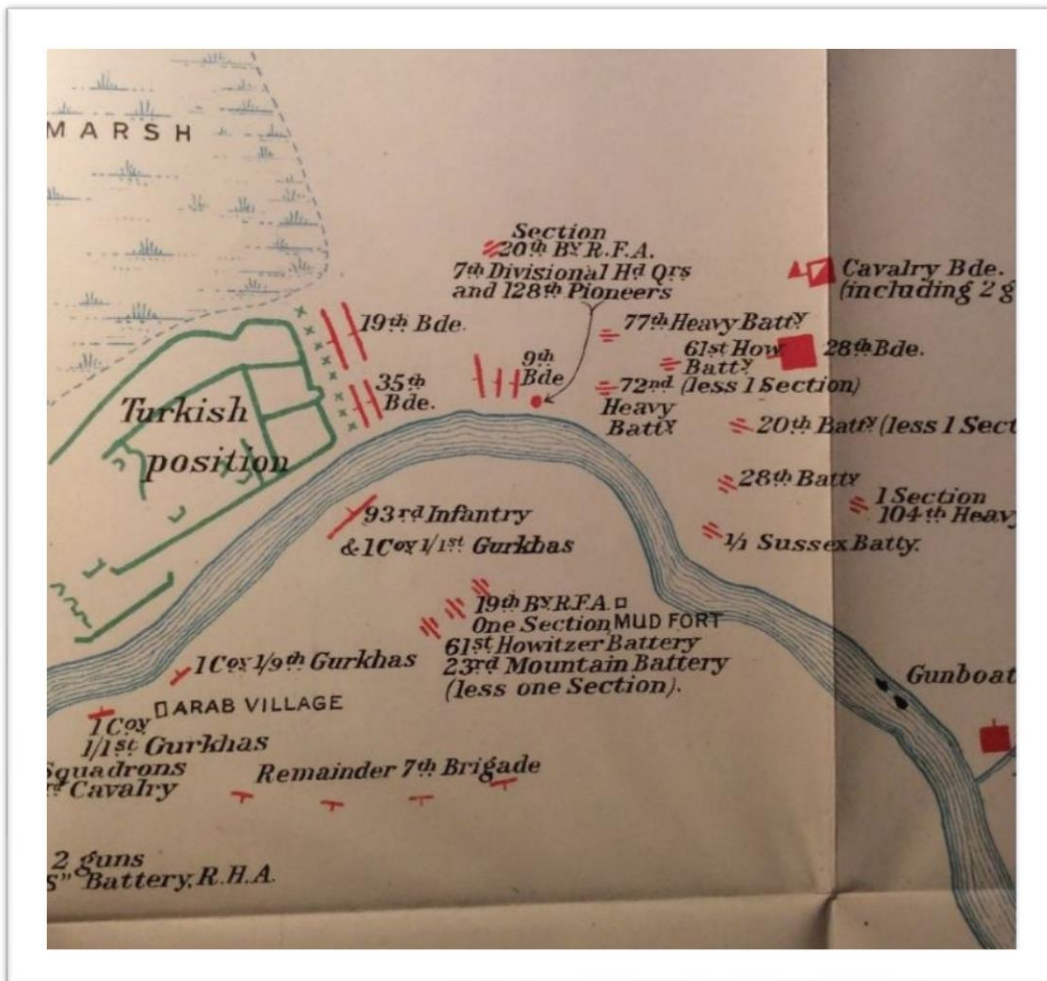 MARSH
Section
20th By R.F.A.
7th Divisional Hd Qrs
and 128th Pioneers
Cavalry Bde.
(including 2 g
19th Bde.
77th Heavy Batty
61st How
Batty
28th Bde.
9th
Bde
35th
Bde.
72nd (less 1 Section)
Heavy
Batty
Turkish
position
20th Batty (less 1 Sect
28th Batty
1 Section
104th Heavy
93rd Infantry
& 1 Coy 1/1st Gurkhas
1/1 Sussex Batty.
19th By R.F.A.
One Section
MUD FORT
61st Howitzer Battery
23rd Mountain Battery
(less one Section).
1 Coy 1/9th Gurkhas
Gunboat
ARAB VILLAGE
1 Coy
1/1st Gurkhas
Squadrons
Cavalry
Remainder 7th Brigade
2 guns
S" Battery, R.H.A.